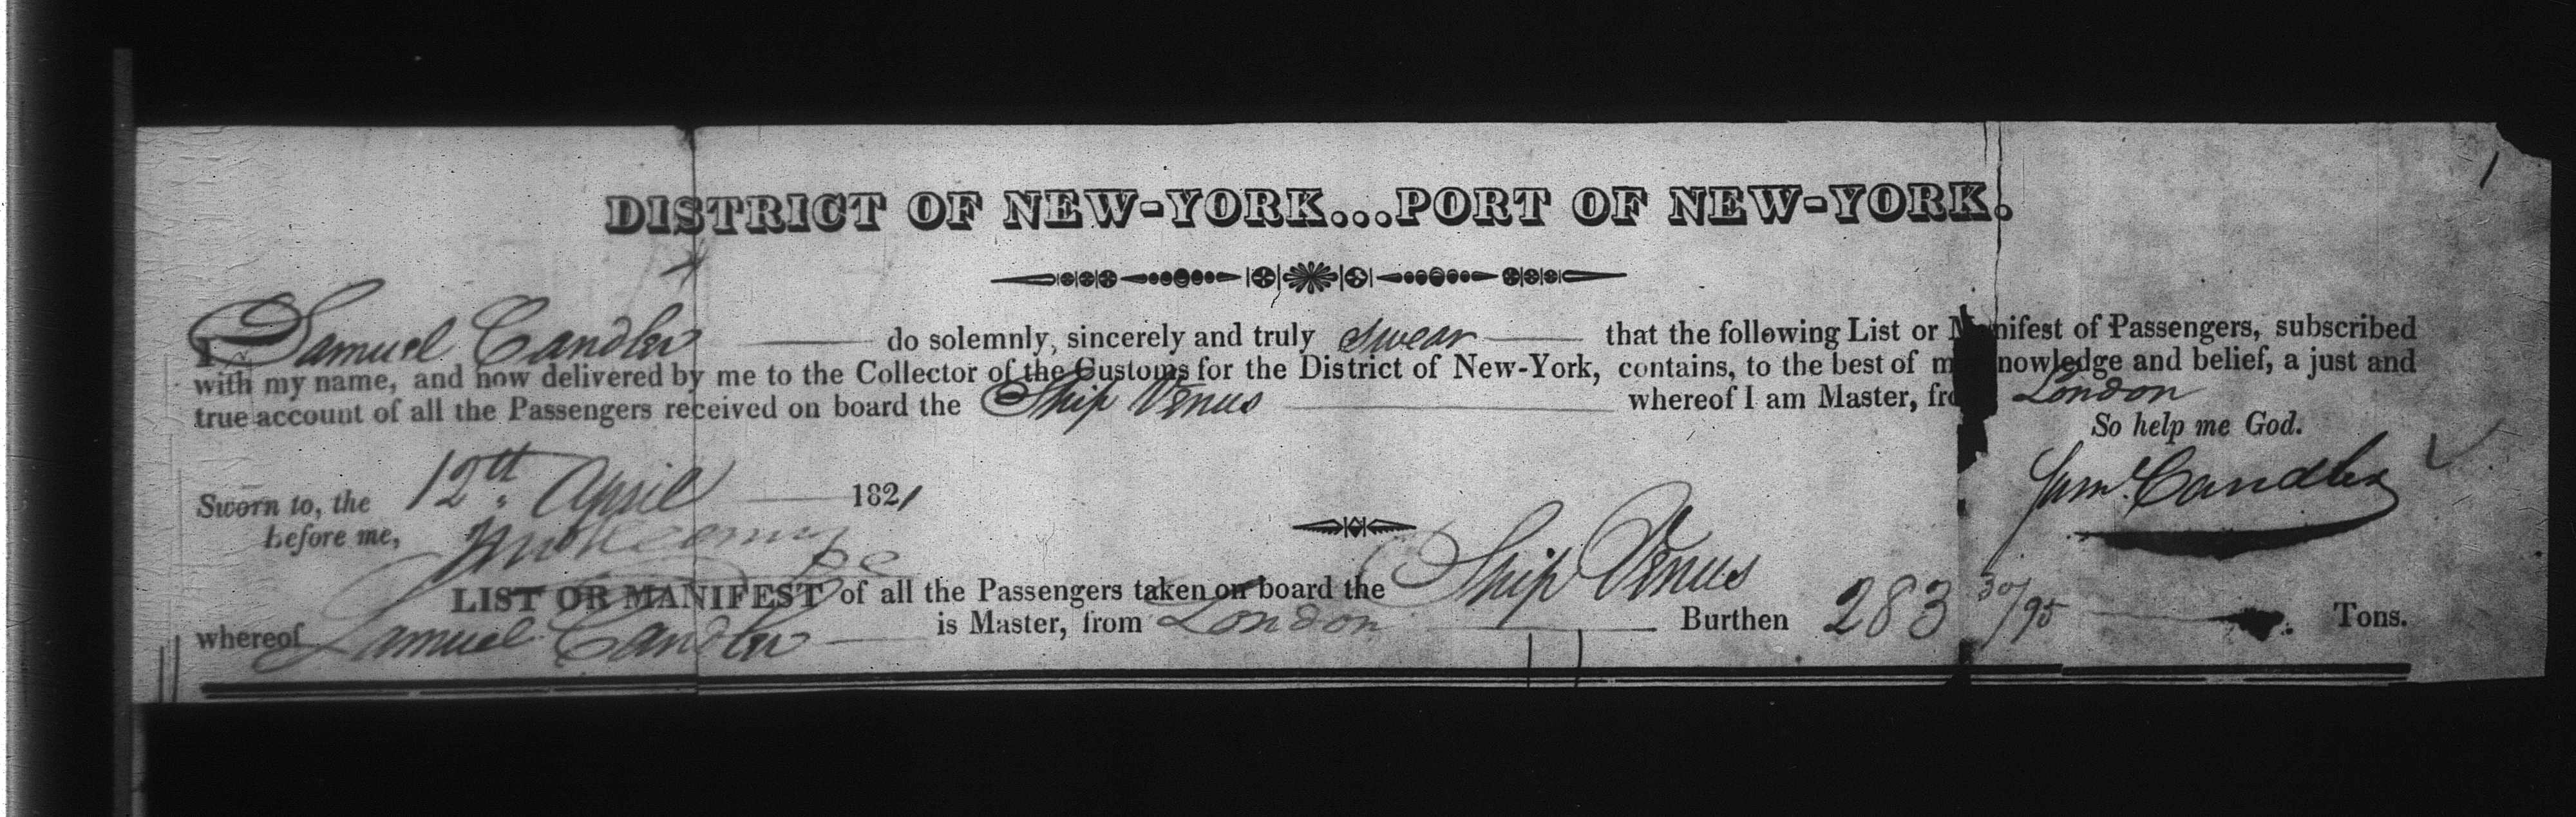 DISTRICT OF NEW-YORK...PORT OF NEW-YORK.
I Samuel Candler do solemnly, sincerely and truly swear that the following List or Manifest of Passengers, subscribed
with my name, and now delivered by me to the Collector of the Customs for the District of New-York, contains, to the best of my knowledge and belief, a just and
true account of all the Passengers received on board the Ship Venus whereof I am Master, from London
So help me God.
Sworn to, the 12th April 1821
Sam. Candler
before me,
LIST OR MANIFEST of all the Passengers taken on board the Ship Venus
whereof Samuel Candler is Master, from London Burthen 283 30/95 Tons.